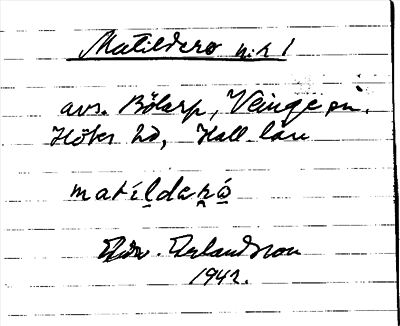 Matildero n.k 1
avs. Bölarp, Veinge sn.
Höks hd, Hall. län
matíldaró
Edv. Erlandsson
1942.